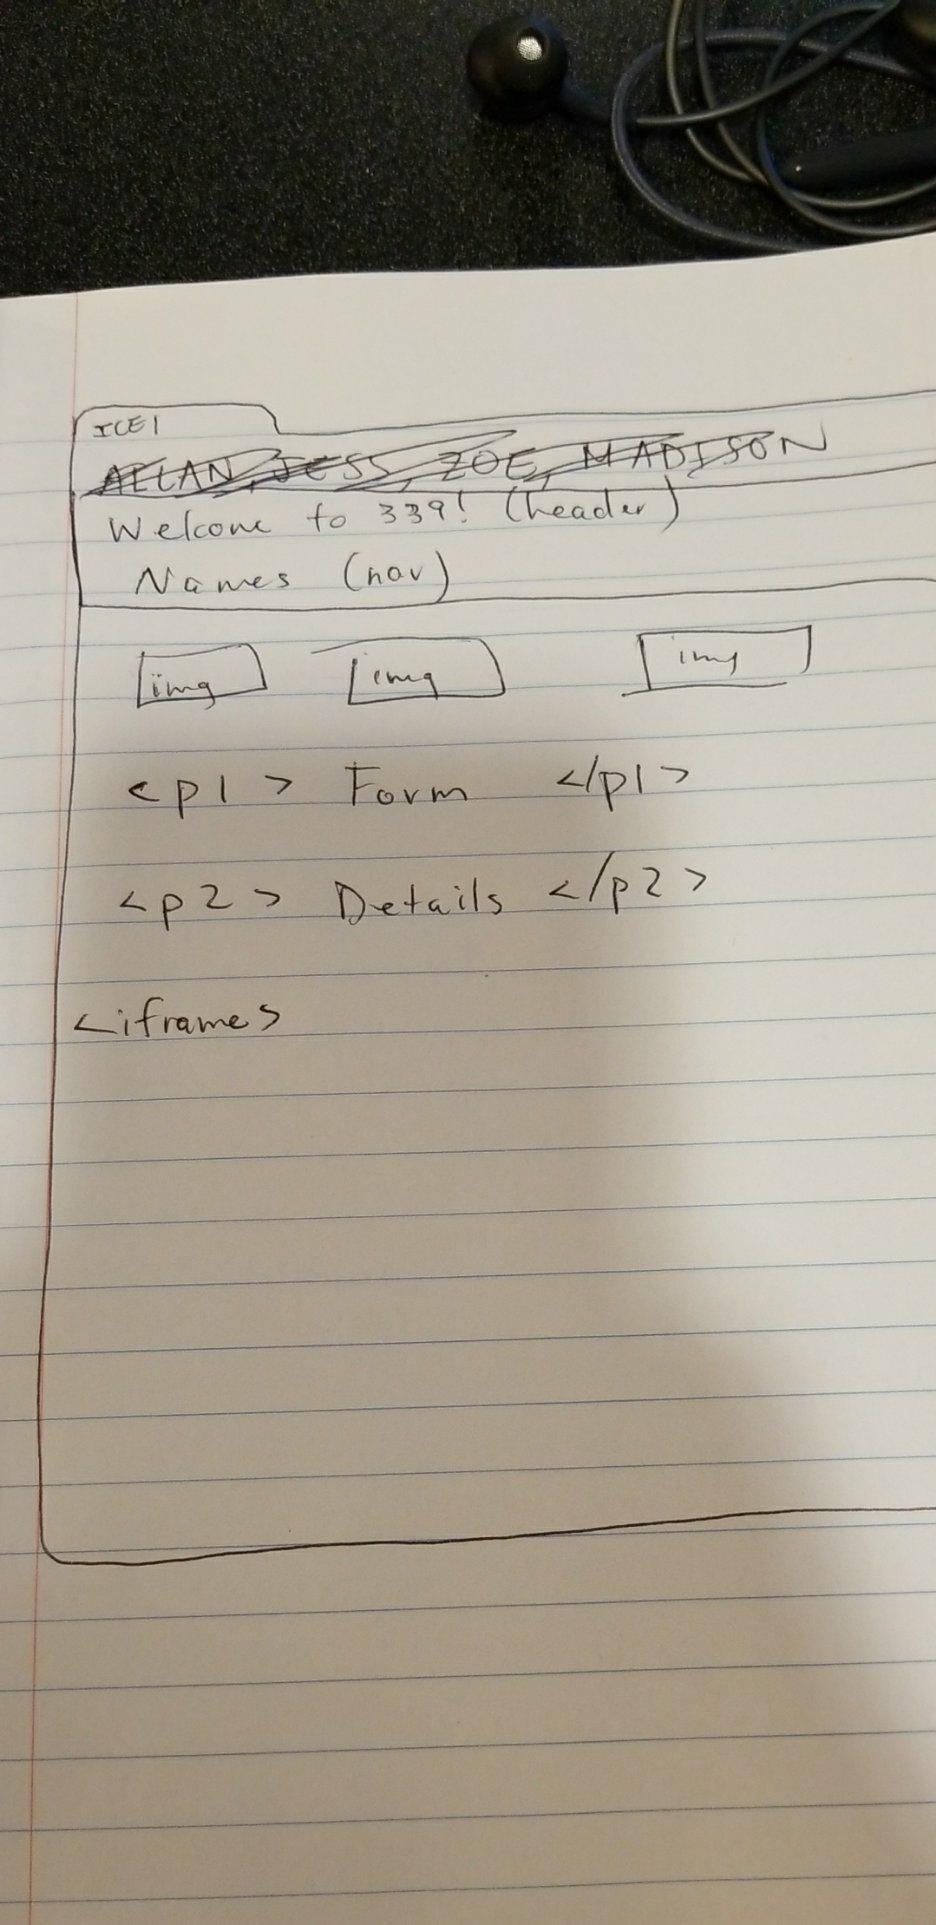 ICE 1
ALLAN, JESS, ZOE, MADISON
Welcome to 339! (header)
Names (nav)
img img img
<p1> Form </p1>
<p2> Details </p2>
<iframe>